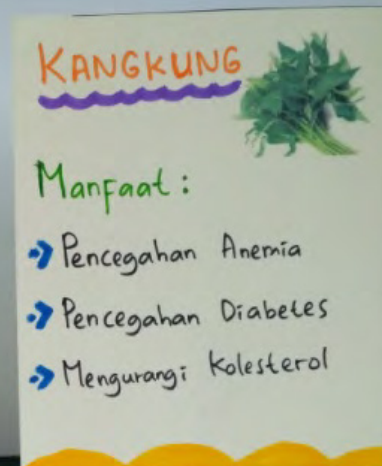 KANGKUNG
Manfaat :
Pencegahan Anemia
Pencegahan Diabetes
Mengurangi Kolesterol